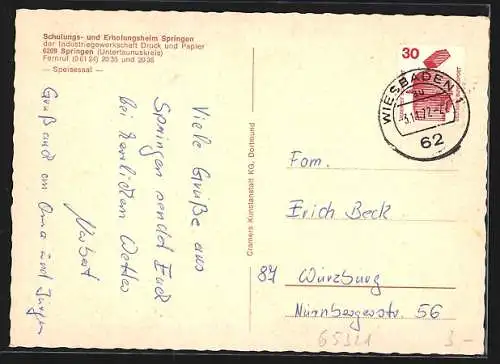 Schulungs- und Erholungsheim Springen
der Industriegewerkschaft Druck und Papier
6209 Springen (Untertaunuskreis)
Fernruf (06124) 2035 und 2036
— Speisesaal —
Viele Grüße aus
Springen sendet Euch
bei herrlichem Wetter
Norbert
Gruß auch an Oma und Jürgen
Cramers Kunstanstalt KG, Dortmund
30
WIESBADEN 1
62
Fam.
Erich Beck
87 Würzburg
Nürnbergerstr. 56
65321
3-